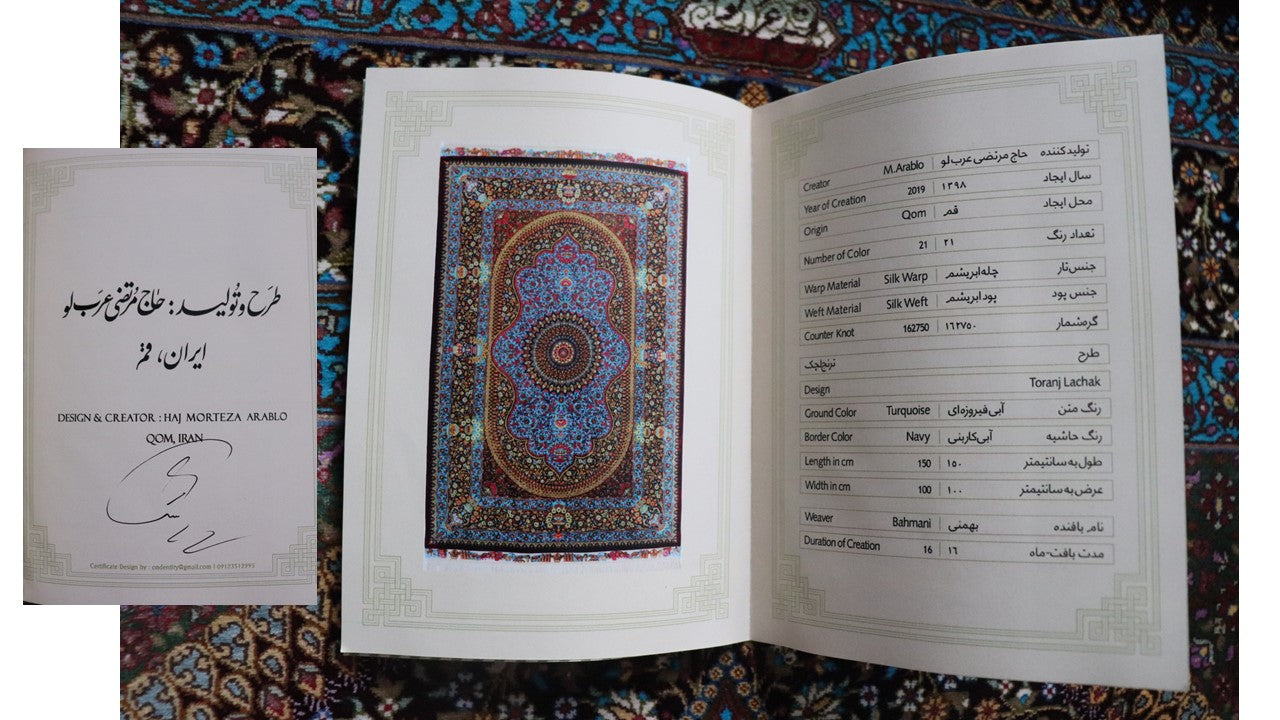 طرح و تولید: حاج مرتضی عرب لو
ایران، قم
DESIGN & CREATOR : HAJ MORTEZA ARABLO
QOM, IRAN
Certificate Design by : omdentity@gmail.com | 09123512995
Creator M.Arablo | حاج مرتضی عرب‌لو تولیدکننده
Year of Creation 2019 | ۱۳۹۸ سال ایجاد
Origin Qom | قم محل ایجاد
Number of Color 21 | ۲۱ تعداد رنگ
Warp Material Silk Warp | چله‌ابریشم جنس‌تار
Weft Material Silk Weft | پودابریشم جنس پود
Counter Knot 162750 | ۱۶۲۷۵۰ گره‌شمار
ترنج‌لچک طرح
Design Toranj Lachak
Ground Color Turquoise | آبی‌فیروزه‌ای رنگ متن
Border Color Navy | آبی‌کاربنی رنگ حاشیه
Length in cm 150 | ۱۵۰ طول‌به‌سانتیمتر
Width in cm 100 | ۱۰۰ عرض‌به‌سانتیمتر
Weaver Bahmani | بهمنی نام بافنده
Duration of Creation 16 | ۱۶ مدت بافت-ماه